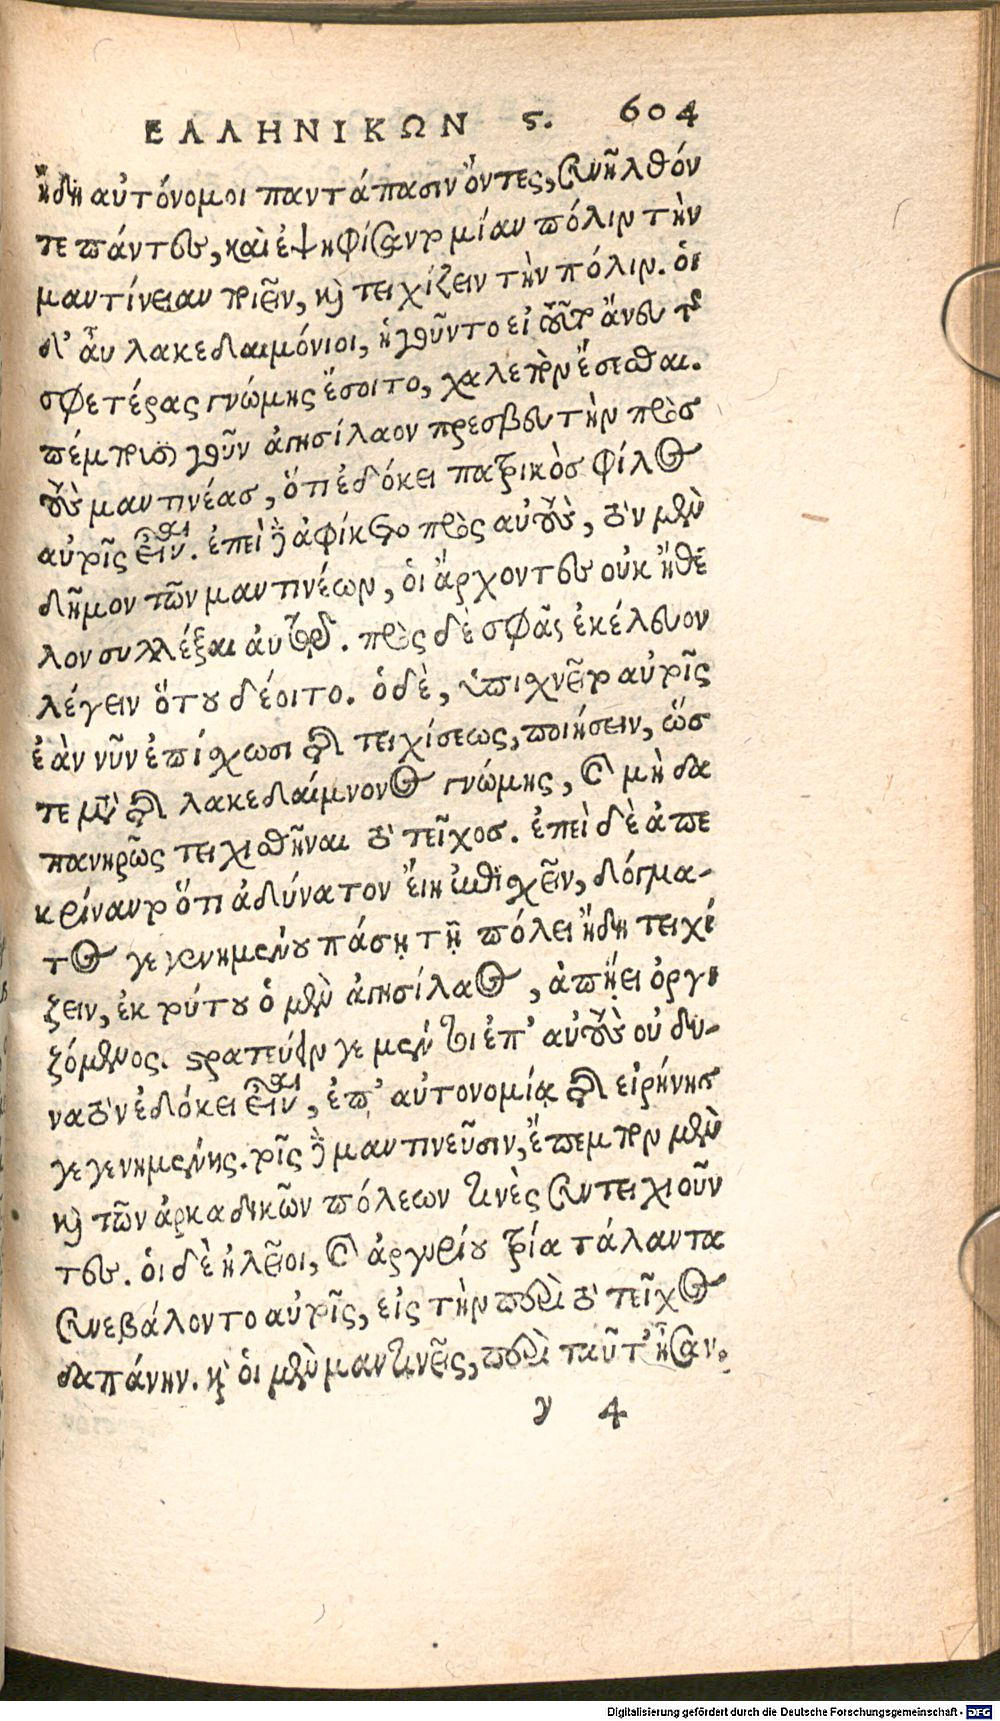 ΕΛΛΗΝΙΚΩΝ ϛ. 604
ἤδη αὐτόνομοι παντάπασιν ὄντες, συνῆλθόν
τε πάντες, καὶ ἐψηφίσαντο μίαν πόλιν τὴν
μαντίνειαν ποιεῖν, καὶ τειχίζειν τὴν πόλιν. οἱ
δ' αὖ λακεδαιμόνιοι, ἡγοῦντο εἰ τοῦτο ἄνευ τῆς
σφετέρας γνώμης ἔσοιτο, χαλεπὸν ἔσεσθαι.
πέμπουσιν οὖν ἀγησίλαον πρεσβευτὴν πρὸς
τοὺς μαντινέας, ὅτι ἐδόκει πατρικὸς φίλος
αὐτοῖς εἶναι. ἐπεὶ δὲ ἀφίκετο πρὸς αὐτοὺς, τὸν μὲν
δῆμον τῶν μαντινέων, οἱ ἄρχοντες οὐκ ἤθε
λον συλλέξαι αὐτῷ. πρὸς δὲ σφᾶς ἐκέλευον
λέγειν ὅτου δέοιτο. ὁ δὲ, ὑπισχνεῖτο αὐτοῖς
ἐὰν νῦν ἐπίσχωσι τῆς τειχίσεως, ποιήσειν, ὥσ
τε μετὰ τῆς λακεδαίμονος γνώμης, καὶ μὴ δα
πανηρῶς τειχισθῆναι τὸ τεῖχος. ἐπεὶ δὲ ἀπε
κρίναντο ὅτι ἀδύνατον εἴη ἐπισχεῖν, δόγμα-
τος γεγενημένου πάσῃ τῇ πόλει ἤδη τειχί
ζειν, ἐκ τούτου ὁ μὲν ἀγησίλαος, ἀπῄει ὀργι
ζόμενος. στρατεύειν γε μέντοι ἐπ' αὐτοὺς οὐ δυ-
νατὸν ἐδόκει εἶναι, ἐπ' αὐτονομίᾳ τῆς εἰρήνης
γεγενημένης. τοῖς δὲ μαντινεῦσιν, ἔπεμπον μὲν
καὶ τῶν ἀρκαδικῶν πόλεων τινὲς συντειχιοῦν
τες. οἱ δὲ ἠλεῖοι, καὶ ἀργυρίου τρία τάλαντα
συνεβάλοντο αὐτοῖς, εἰς τὴν περὶ τὸ τεῖχος
δαπάνην. καὶ οἱ μὲν μαντινεῖς, περὶ ταῦτ' ἦσαν.
y 4
Digitalisierung gefördert durch die Deutsche Forschungsgemeinschaft - DFG